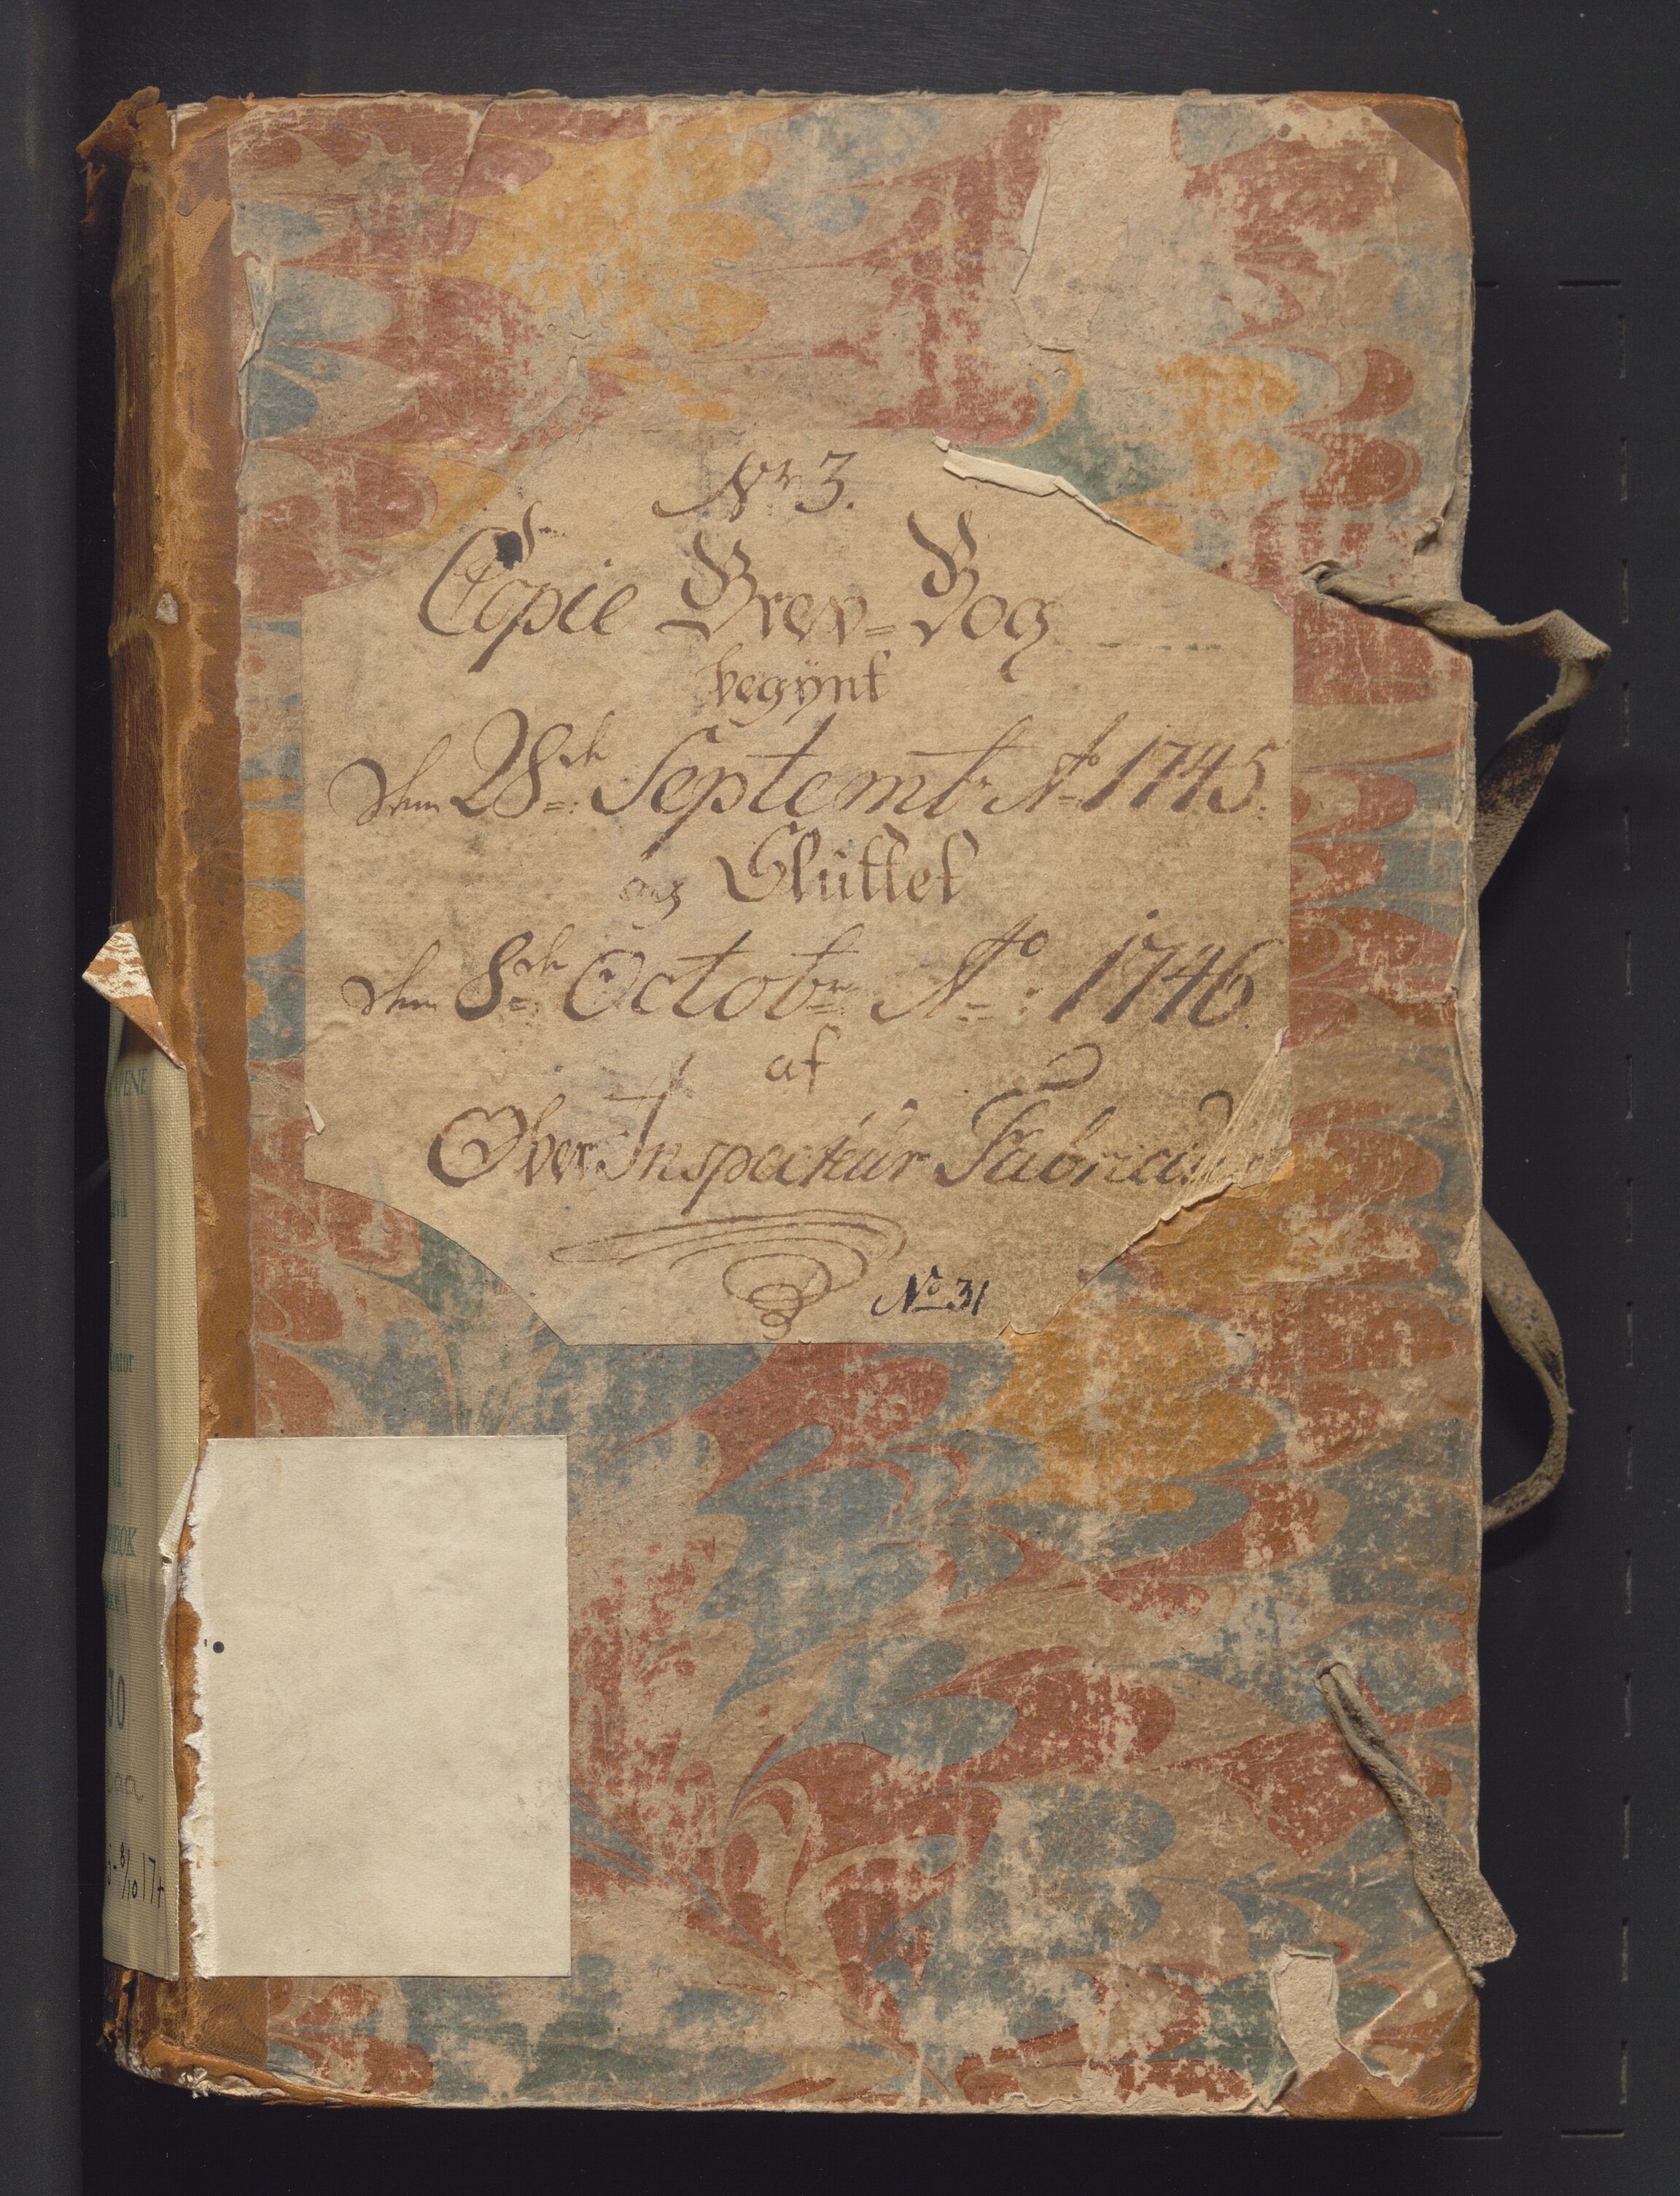 Nr 3.
Copie Brev=Bog
begÿnt
dhen 28de Septembr Ao 1745.
og Sluttet
dhen 8de Octobr Ao: 1746.
af
Ober Inspecteur Fabricius
No 31
30
8/10 17